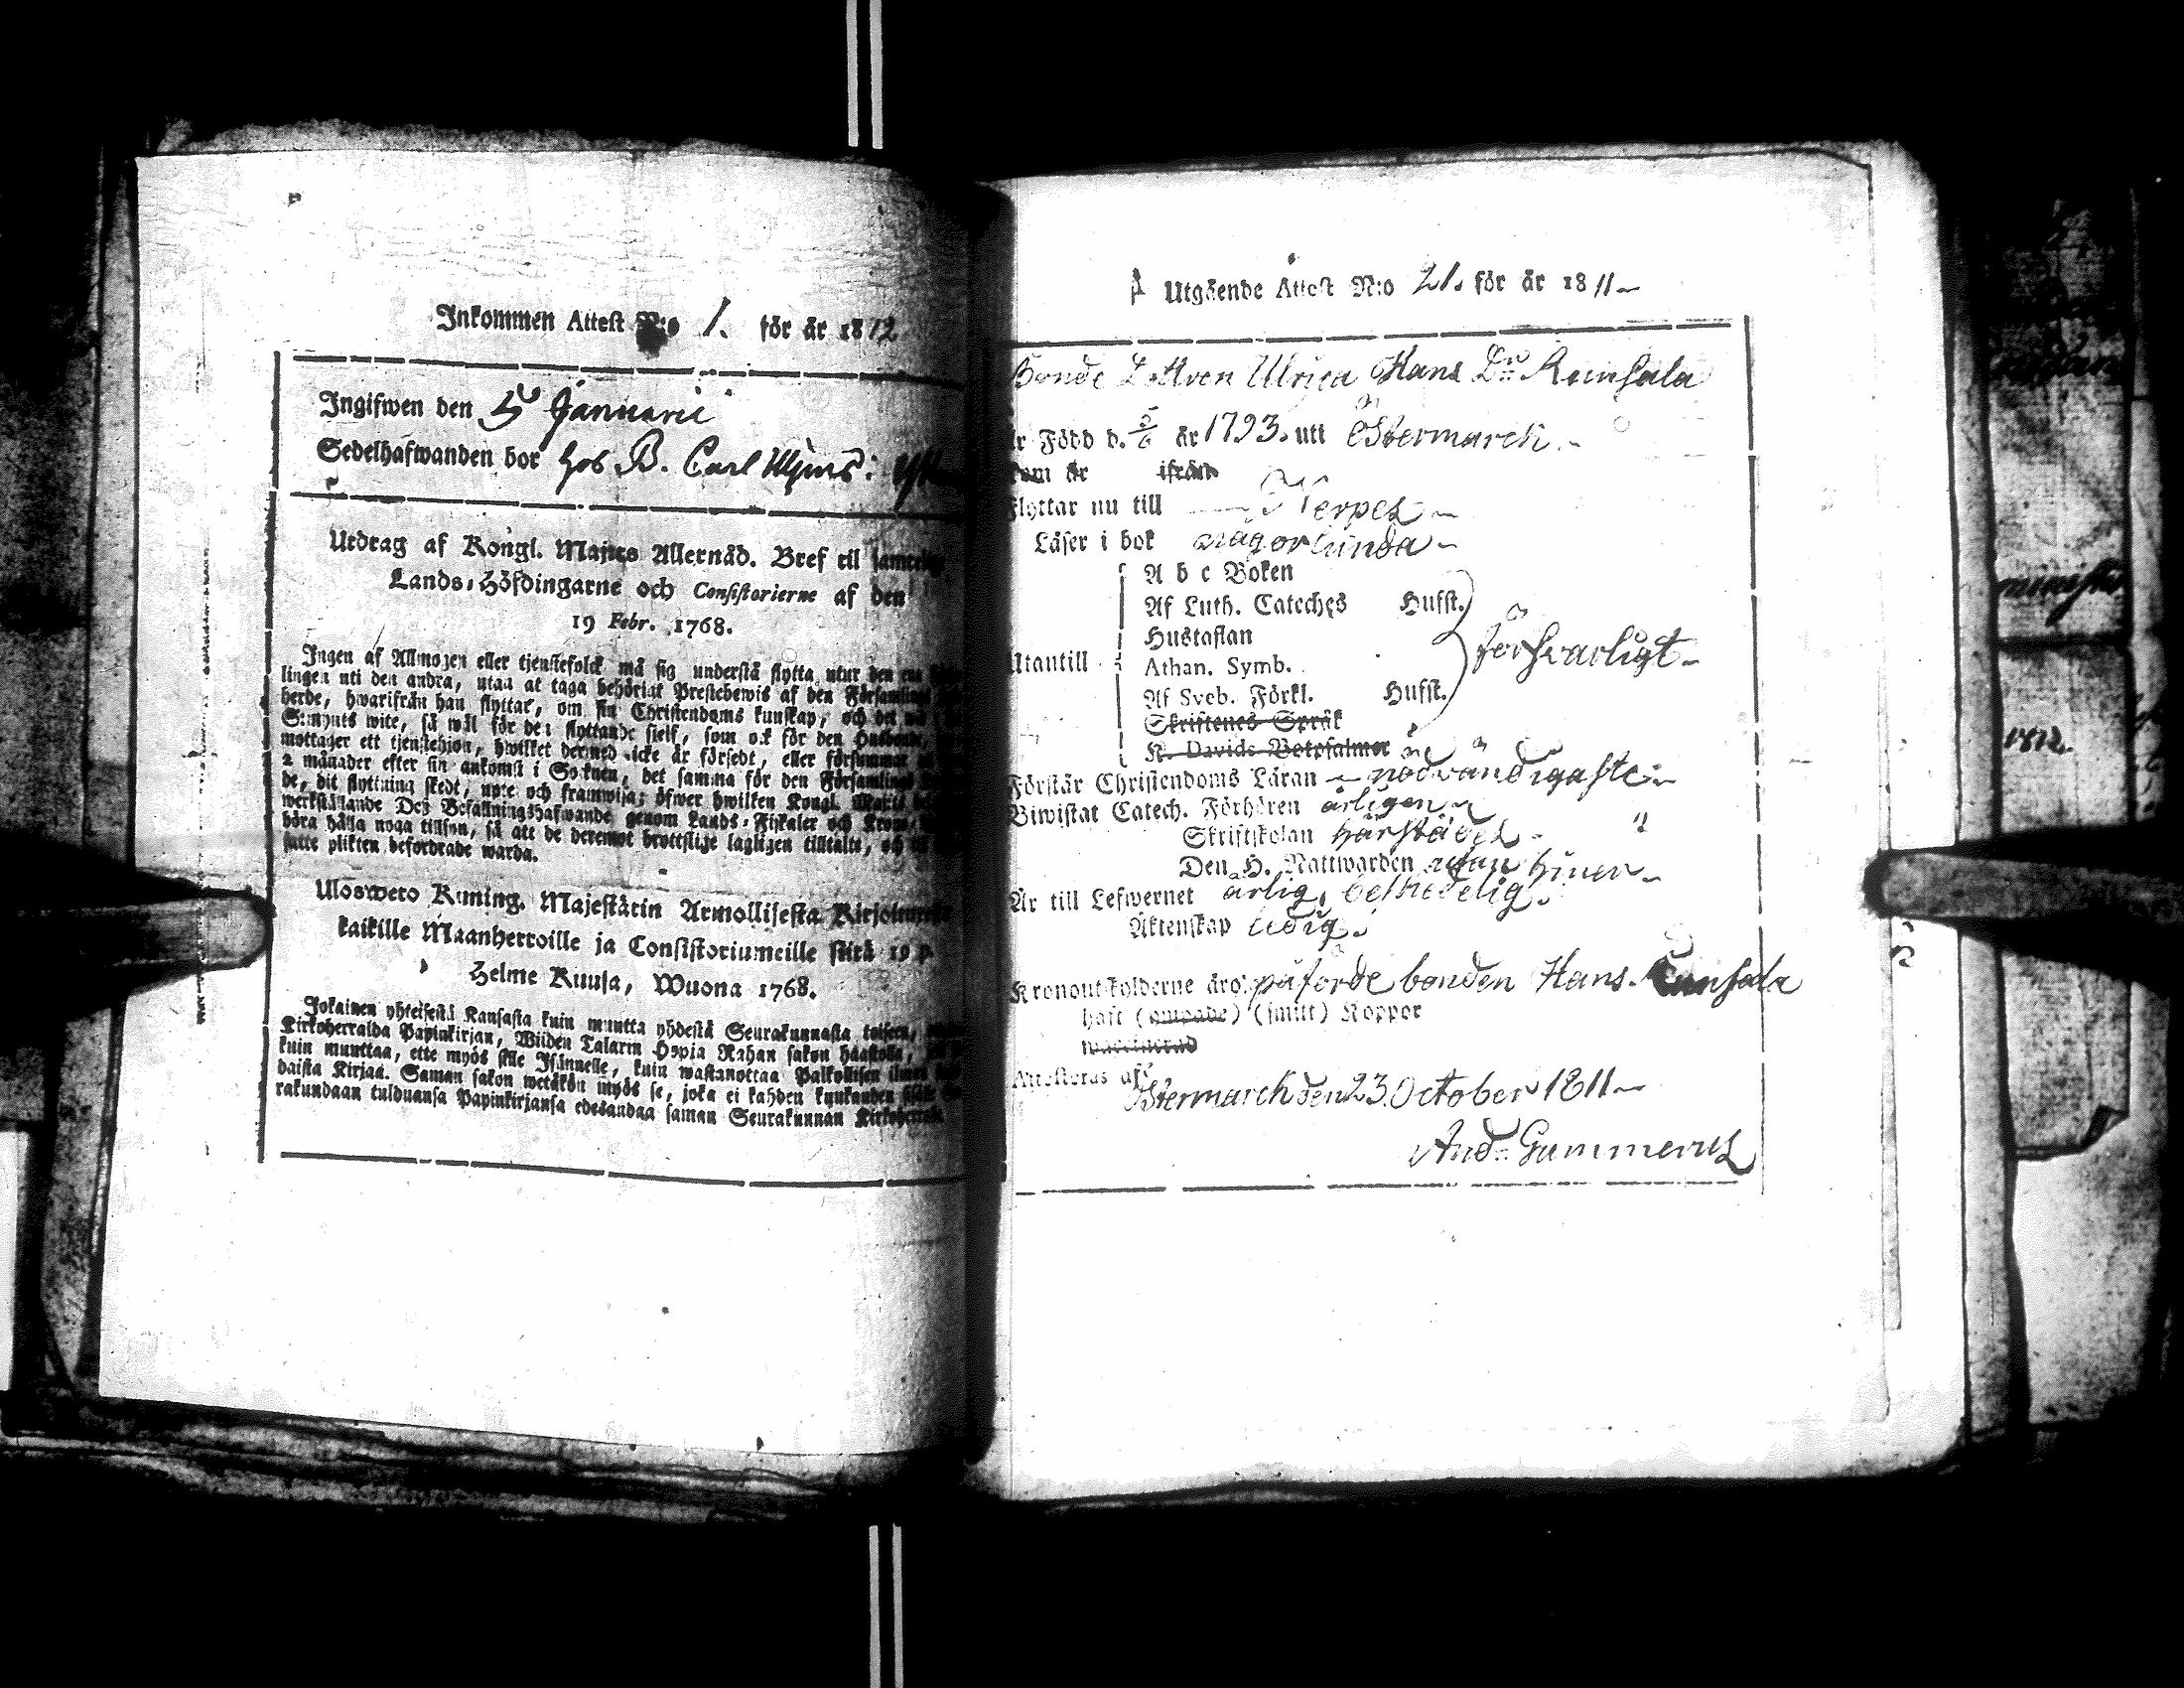 Inkommen Attest N:o 1. för år 1812
Ingifwen den 5 Januarii
Sedelhafwanden bor hos B. Carl
Utdrag af Kongl. Maj:ts Allernåd. Bref til samtelige
Lands-Höfdingarne och Consistorierne af den
19 Febr. 1768.
Ingen af Allmogen eller tjenstefolck må sig understå flytta utur den ena
lingen uti den andra, utan at taga behörigt Prestebewis af den Församlings
herde, hwarifrån han flyttar, om sin Christendoms kunskap, och det wid
S:mynts wite, så wäl för den flyttande sielf, som ock för den Husbonde,
mottager ett tjenstehjon, hwilket dermed icke är försedt, eller försummar
2 månader efter sin ankomst i Soknen, det samma för den Församlings
de, dit flyttning skedt, upte och framwisa; öfwer hwilken Kongl. Maj:ts
werkställande Des Befallningshafwande genom Lands-Fiskaler och Krono
böra hålla noga tillsyn, så att de deremot brottslige lagligen tilltalte, och
satte plikten befordrade warda.
Ulosweto Kuning. Majestärin Armollisesta Kirjoituxesta
kaikille Maanherroille ja Consistoriumeille siitä 19 p.
Helme Kuusa, Wuona 1768.
Jokainen yhteisestä Kansasta kuin muutta yhdestä Seurakunnasta toiseen,
Kirkoherralda Papinkirjan, Wiiden Talarin Hopia Rahan sakon haastolla,
kuin muuttaa, ette myös sille Isännelle, kuin wastanottaa Palkollisen ilman
daista Kirjaa. Saman sakon wetäkön myös se, joka ei kahden kuukauden
rakundaan tulduansa Papinkirjansa edesandaa saman Seurakunnan Kirkoherralle
Utgående Attest N:o 21. för år 1811
Bonde Dottren Ulrica Hans Dr Runsala
är Född d. 5/6 år 1793. uti Östermarck.
som är ifrån
Flyttar nu till Terpes
Läser i bok någorlunda
A b c Boken
Af Luth. Cateches Hufst.
Hustaflan
Utantill Athan. Symb. försvarligt
Af Sveb. Förkl. Hufst.
Skriftenes Språk
K. Davids Botpsalmer
Förstår Christendoms Läran nödvändigaste
Biwistat Catech. Förhören årligen
Skriftskolan härstädes "
Den H. Nattwarden utan hinder
Är till Lefwernet ärlig, beskedelig.
Äktenskap ledig.
Kronoutskylderne äro påförde bonden Hans Runsala
haft (ympade) (smitt) Koppor
waccinerad
Attesteras af
Östermarck den 23 October 1811
And. Gummerus
1812.